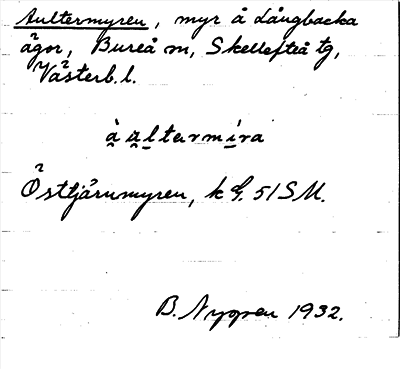 Aultermyren, myr å Långbacka
ägor, Bureå sn, Skellefteå tg,
Västerb. l.
à a̤l̲termi̲ra
Östtjärnmyren, k G. 51 SM.
B. Nygren 1932.